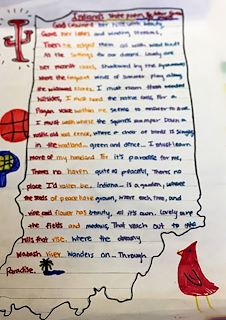 Indiana's State poem
God crowned her hills with beauty,
Gave her lakes and winding streams,
Then He edged them all with woodlands
As the settings for our dreams. Lovely are
her moonlit rivers, Shadowed by the sycamores
Where the fragrant winds of Summer play along
the willowed shores. I must roam those wooded
hillsides, I must heed the native calls, For a
Pagan voice within me seems to answer to
I must walk where the squirrels scamper Down a
rustic old rail fence, where a choir of birds is singing
In the woodland.. green and dense. I must learn
more of my homeland For it's paradise for me,
There's no haven quite as peaceful, There's no
place I'd rather be. Indiana... is a garden, where
the seeds of peace have grown, Where each tree, and
vine and flower has beauty, all it's own. Lovely are
the fields and meadows, That reach out to the
hills that rise. where the dreamy
Wabash river wanders on... Through
Paradise.